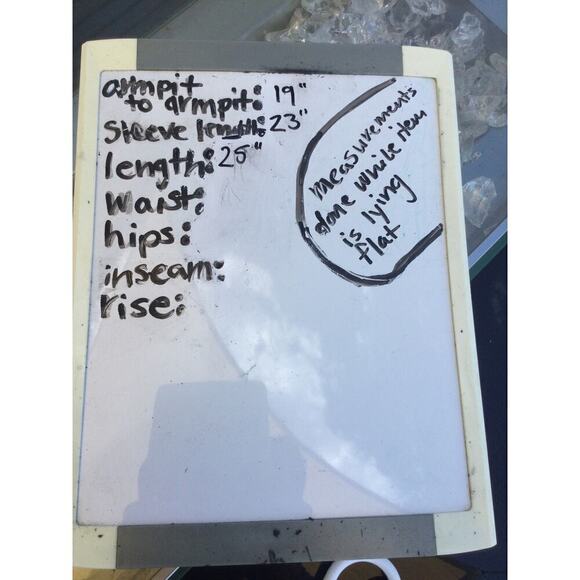 armpit
to armpit: 19"
sleeve length: 23"
length: 25"
waist:
hips:
inseam:
rise:
measurements
done while item
is lying
flat